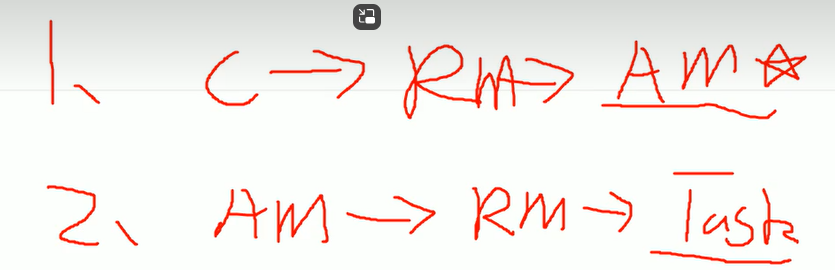 1、 C → RM → AM ☆
2、 AM → RM → Task